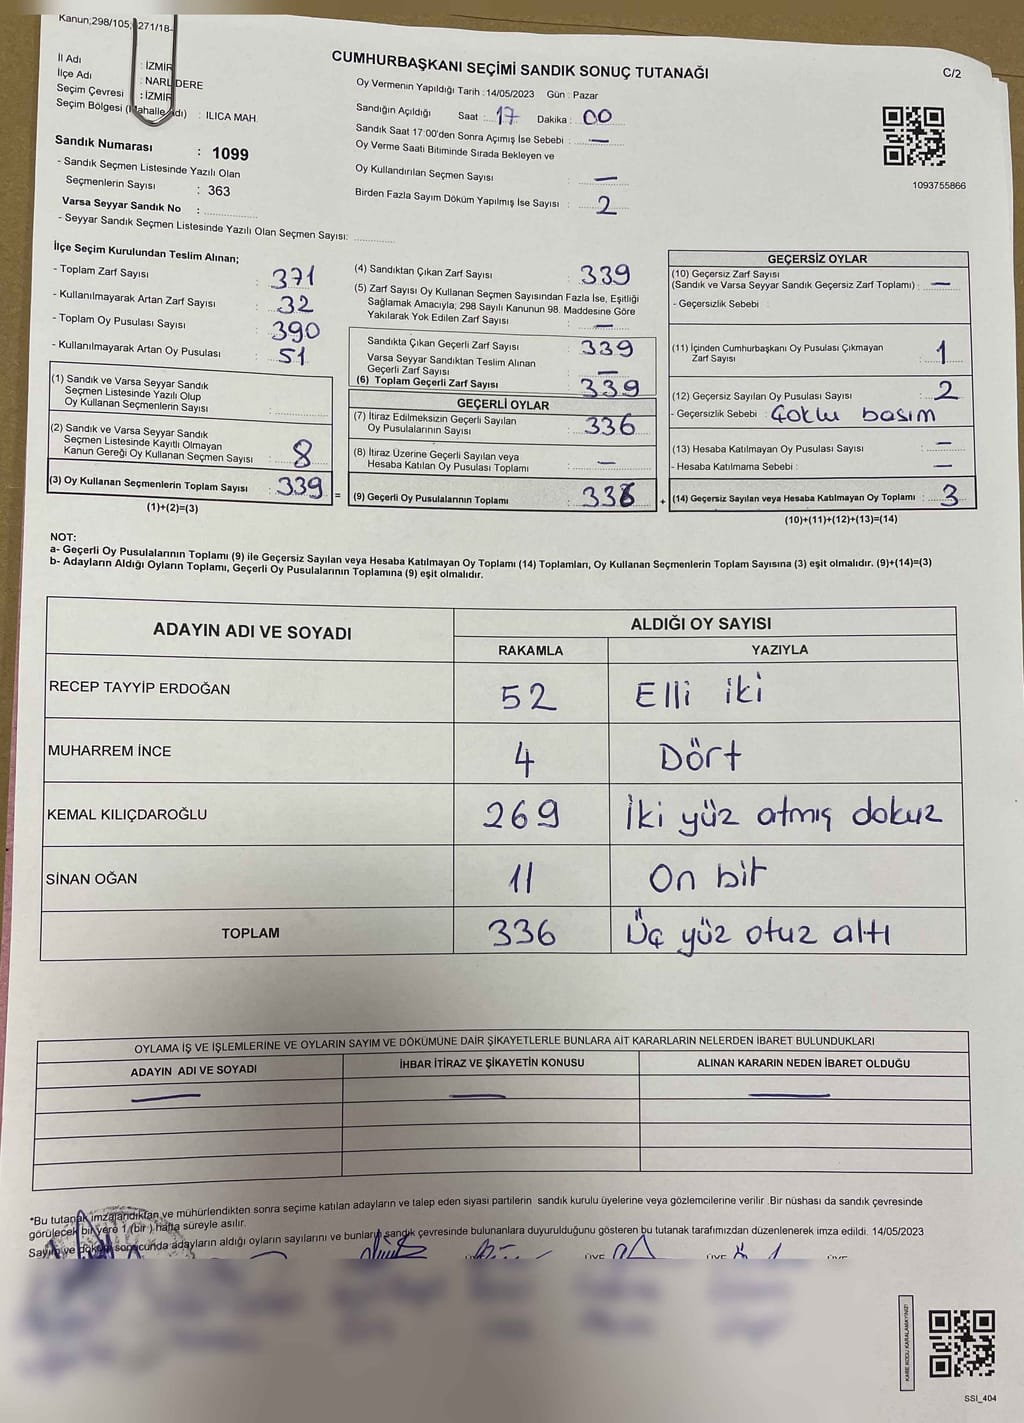 Kanun;298/105; 271/18-
İl Adı : İZMİR
İlçe Adı : NARLIDERE
Seçim Çevresi : İZMİR
Seçim Bölgesi (Mahalle Adı) : ILICA MAH.
Sandık Numarası : 1099
- Sandık Seçmen Listesinde Yazılı Olan
Seçmenlerin Sayısı : 363
Varsa Seyyar Sandık No :
- Seyyar Sandık Seçmen Listesinde Yazılı Olan Seçmen Sayısı:
CUMHURBAŞKANI SEÇİMİ SANDIK SONUÇ TUTANAĞI
C/2
Oy Vermenin Yapıldığı Tarih : 14/05/2023 Gün : Pazar
Sandığın Açıldığı Saat : 17 Dakika : 00
Sandık Saat 17:00'den Sonra Açımış İse Sebebi : —
Oy Verme Saati Bitiminde Sırada Bekleyen ve
Oy Kullandırılan Seçmen Sayısı : —
Birden Fazla Sayım Döküm Yapılmış İse Sayısı : 2
1093755866
İlçe Seçim Kurulundan Teslim Alınan;
- Toplam Zarf Sayısı : 371
- Kullanılmayarak Artan Zarf Sayısı : 32
- Toplam Oy Pusulası Sayısı : 390
- Kullanılmayarak Artan Oy Pusulası : 51
(1) Sandık ve Varsa Seyyar Sandık
Seçmen Listesinde Yazılı Olup
Oy Kullanan Seçmenlerin Sayısı :
(2) Sandık ve Varsa Seyyar Sandık
Seçmen Listesinde Kayıtlı Olmayan
Kanun Gereği Oy Kullanan Seçmen Sayısı : 8
(3) Oy Kullanan Seçmenlerin Toplam Sayısı : 339
(1)+(2)=(3)
=
(4) Sandıktan Çıkan Zarf Sayısı : 339
(5) Zarf Sayısı Oy Kullanan Seçmen Sayısından Fazla İse, Eşitliği
Sağlamak Amacıyla; 298 Sayılı Kanunun 98. Maddesine Göre
Yakılarak Yok Edilen Zarf Sayısı : —
Sandıkta Çıkan Geçerli Zarf Sayısı : 339
Varsa Seyyar Sandıktan Teslim Alınan
Geçerli Zarf Sayısı : —
(6) Toplam Geçerli Zarf Sayısı : 339
GEÇERLİ OYLAR
(7) İtiraz Edilmeksizin Geçerli Sayılan
Oy Pusulalarının Sayısı : 336
(8) İtiraz Üzerine Geçerli Sayılan veya
Hesaba Katılan Oy Pusulası Toplamı : —
(9) Geçerli Oy Pusulalarının Toplamı : 336
+
GEÇERSİZ OYLAR
(10) Geçersiz Zarf Sayısı
(Sandık ve Varsa Seyyar Sandık Geçersiz Zarf Toplamı) : —
- Geçersizlik Sebebi :
(11) İçinden Cumhurbaşkanı Oy Pusulası Çıkmayan
Zarf Sayısı : 1
(12) Geçersiz Sayılan Oy Pusulası Sayısı : 2
- Geçersizlik Sebebi : Çoklu basım
(13) Hesaba Katılmayan Oy Pusulası Sayısı : —
- Hesaba Katılmama Sebebi : —
(14) Geçersiz Sayılan veya Hesaba Katılmayan Oy Toplamı : 3
(10)+(11)+(12)+(13)=(14)
NOT:
a- Geçerli Oy Pusulalarının Toplamı (9) ile Geçersiz Sayılan veya Hesaba Katılmayan Oy Toplamı (14) Toplamları, Oy Kullanan Seçmenlerin Toplam Sayısına (3) eşit olmalıdır. (9)+(14)=(3)
b- Adayların Aldığı Oyların Toplamı, Geçerli Oy Pusulalarının Toplamına (9) eşit olmalıdır.
ADAYIN ADI VE SOYADI
ALDIĞI OY SAYISI
RAKAMLA YAZIYLA
RECEP TAYYİP ERDOĞAN 52 Elli iki
MUHARREM İNCE 4 Dört
KEMAL KILIÇDAROĞLU 269 İki yüz atmış dokuz
SİNAN OĞAN 11 On bir
TOPLAM 336 Üç yüz otuz altı
OYLAMA İŞ VE İŞLEMLERİNE VE OYLARIN SAYIM VE DÖKÜMÜNE DAİR ŞİKAYETLERLE BUNLARA AİT KARARLARIN NELERDEN İBARET BULUNDUKLARI
ADAYIN ADI VE SOYADI İHBAR İTİRAZ VE ŞİKAYETİN KONUSU ALINAN KARARIN NEDEN İBARET OLDUĞU
— — —
*Bu tutanak imzalandıktan ve mühürlendikten sonra seçime katılan adayların ve talep eden siyasi partilerin sandık kurulu üyelerine veya gözlemcilerine verilir. Bir nüshası da sandık çevresinde
görülecek bir yere 1 (bir) hafta süreyle asılır.
Sayım ve döküm sonucunda adayların aldığı oyların sayılarını ve bunların sandık çevresinde bulunanlara duyurulduğunu gösteren bu tutanak tarafımızdan düzenlenerek imza edildi. 14/05/2023
KARE KODU KARALAMAYINIZ!
SSI_404